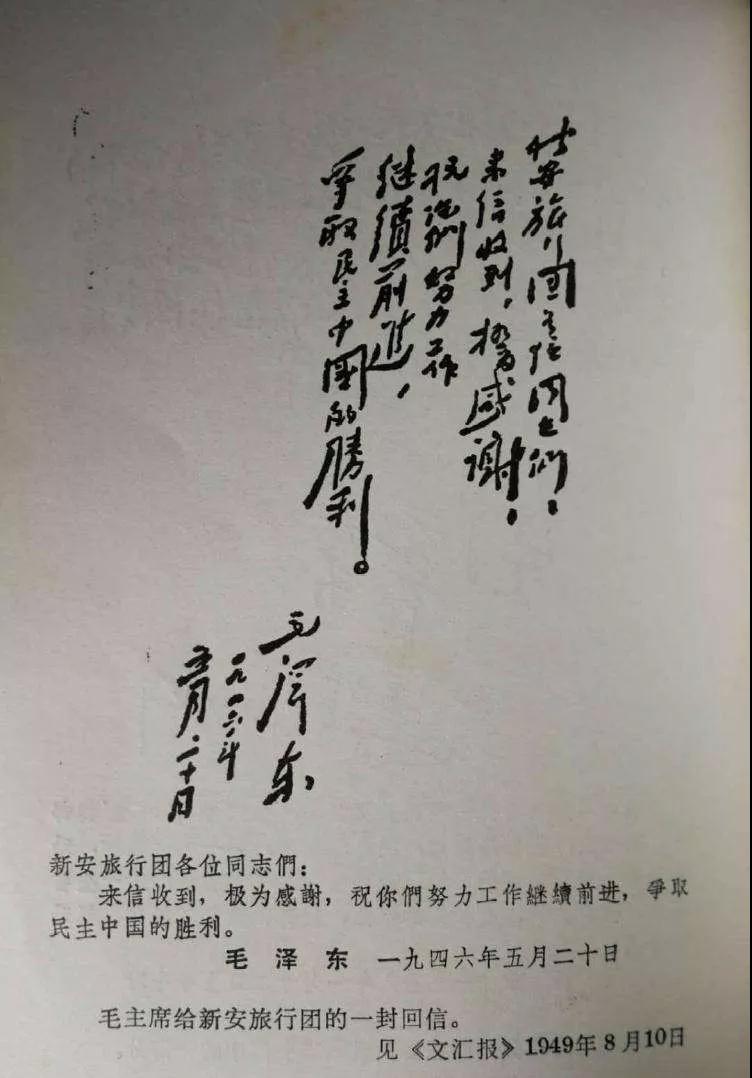 新安旅行團各位同志们！
来信收到，极为感谢！
祝你们努力工作
继續前進，
爭取民主中國的勝利。
毛泽东
一九四六年
五月二十日
新安旅行团各位同志們：
来信收到，极为感謝，祝你們努力工作継續前进，爭取
民主中国的胜利。
毛泽东 一九四六年五月二十日
毛主席给新安旅行团的一封回信。
见《文汇报》1949年8月10日